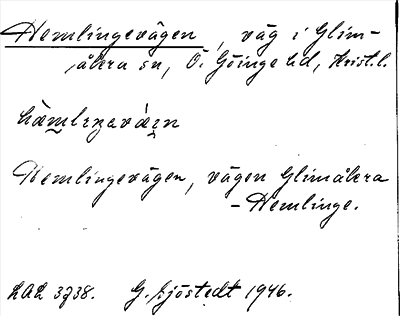 Hemlingevägen, väg i Glim-
åkra sn, Ö. Göinge hd, Krist. l.
Hemlingevägen, vägen Glimåkra
- Hemlinge.
LAL 3738. G. Sjöstedt 1946.